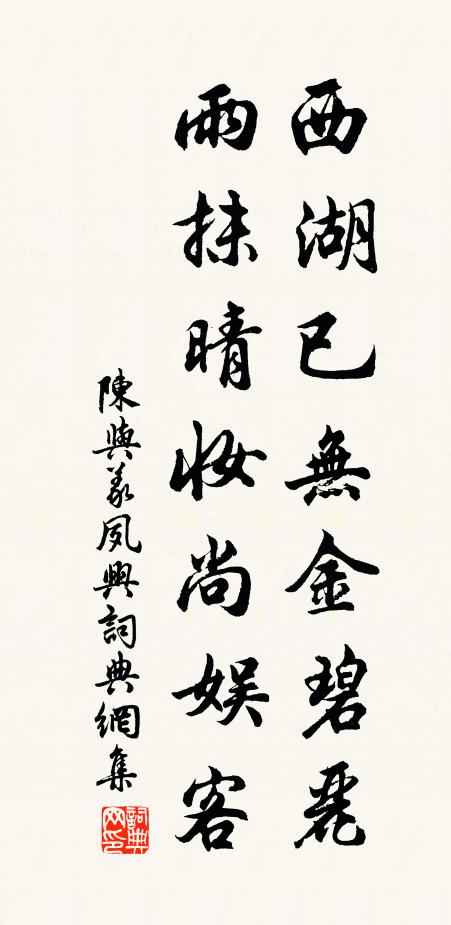 西湖已無金碧麗
雨抹晴妝尚娛客
陳與義夙興詞典網集
詞典
网印